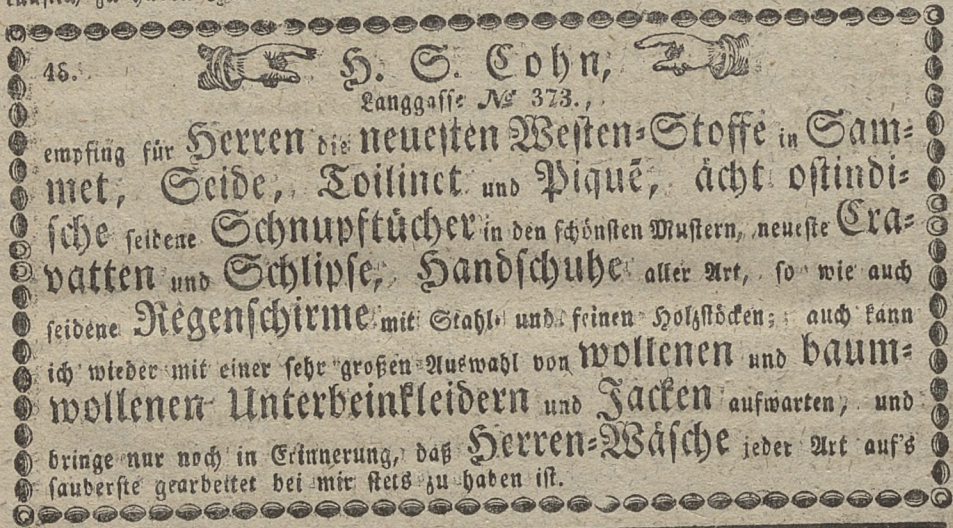 45. H. S. Cohn,
Langgasse № 373.,
empfing für Herren die neuesten Westen-Stoffe in Sam-
met, Seide, Toilinet und Piqué, ächt ostindi-
sche seidene Schnupftücher in den schönsten Mustern, neueste Cra-
vatten und Schlipse, Handschuhe aller Art, so wie auch
seidene Regenschirme mit Stahl- und feinen Holzstöcken; auch kann
ich wieder mit einer sehr großen Auswahl von wollenen und baum-
wollenen Unterbeinkleidern und Jacken aufwarten, und
bringe nur noch in Erinnerung, daß Herren-Wäsche jeder Art auf's
sauberste gearbeitet bei mir stets zu haben ist.